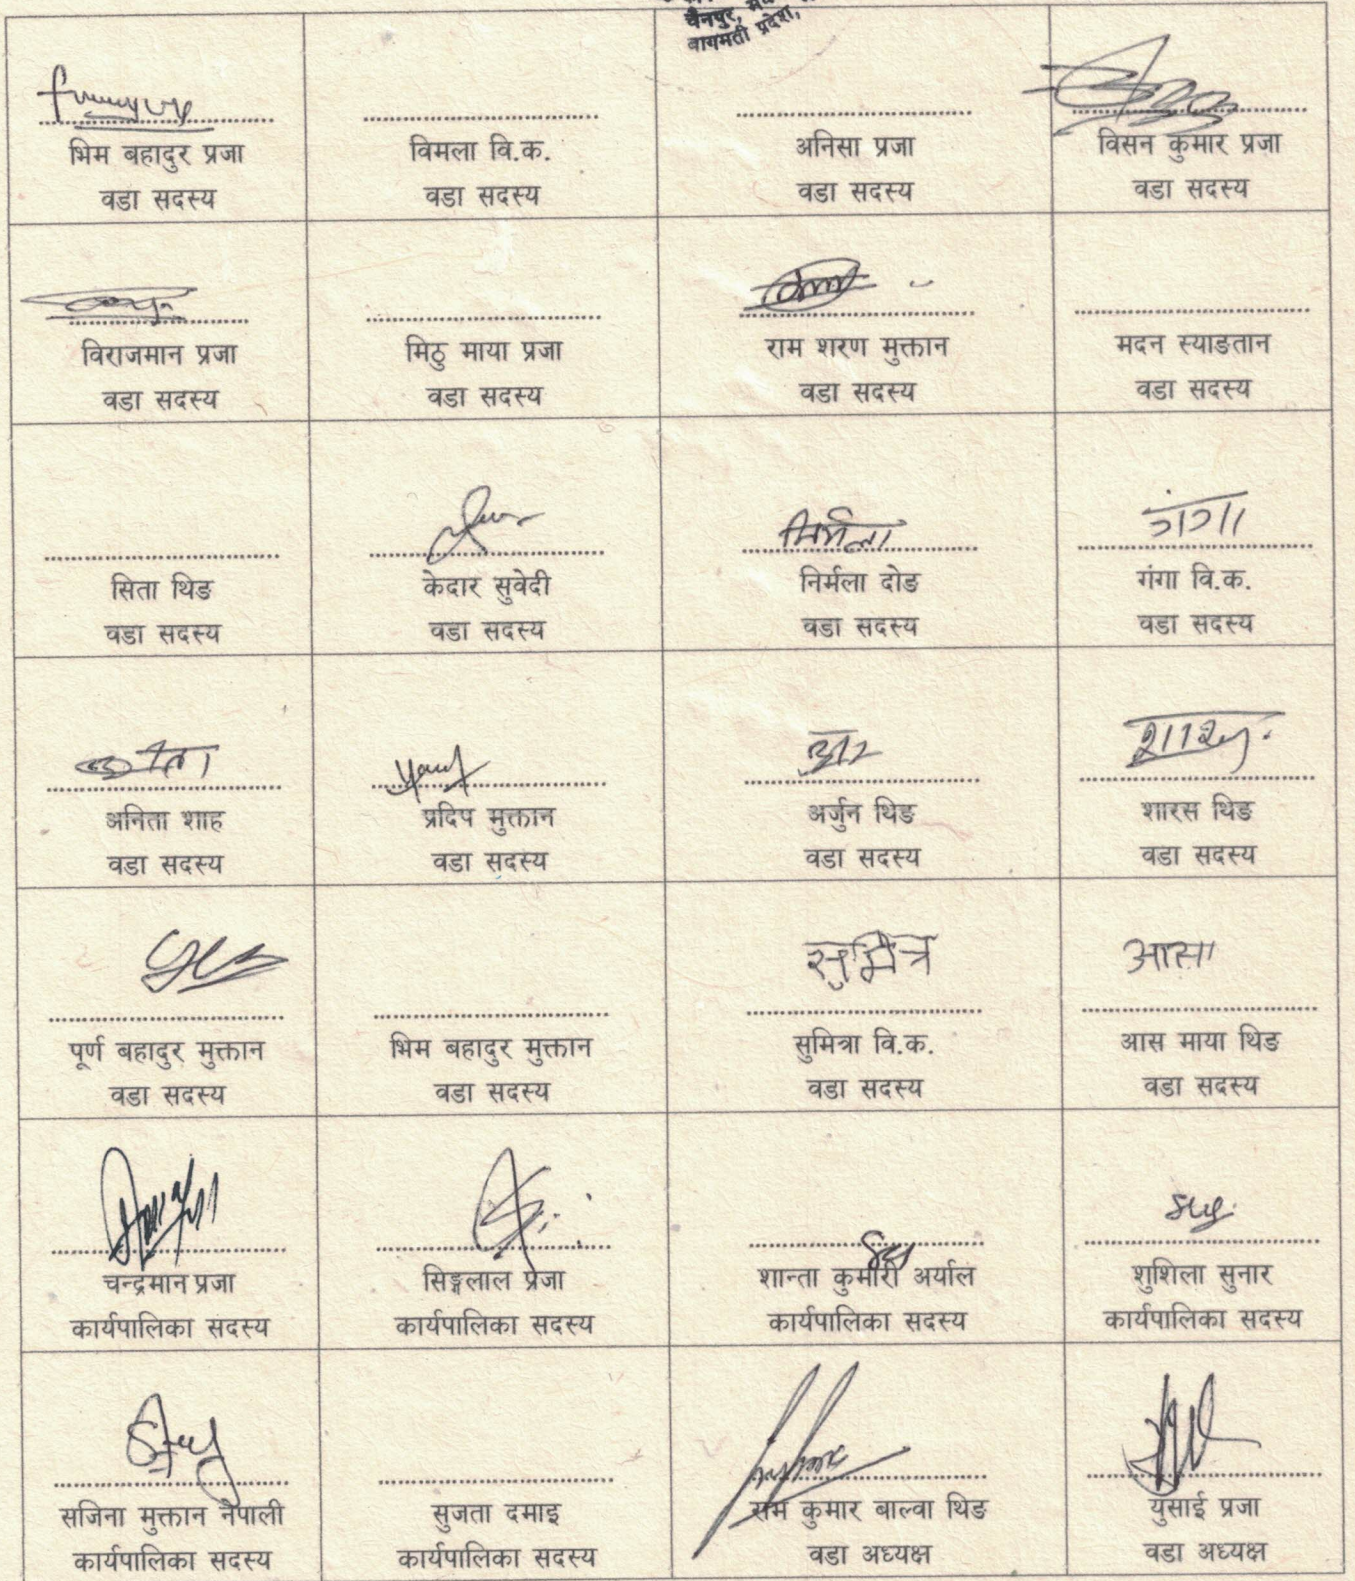 चैनपुर,
वागमती प्रदेश,
भिम बहादुर प्रजा
वडा सदस्य
विमला वि.क.
वडा सदस्य
अनिसा प्रजा
वडा सदस्य
विसन कुमार प्रजा
वडा सदस्य
विराजमान प्रजा
वडा सदस्य
मिठु माया प्रजा
वडा सदस्य
राम शरण मुक्तान
वडा सदस्य
मदन स्याङतान
वडा सदस्य
सिता थिङ
वडा सदस्य
केदार सुवेदी
वडा सदस्य
निर्मला
निर्मला दोङ
वडा सदस्य
गंगा
गंगा वि.क.
वडा सदस्य
अनिता शाह
वडा सदस्य
प्रदिप मुक्तान
वडा सदस्य
अर्जुन थिङ
वडा सदस्य
शारस थिङ
वडा सदस्य
पूर्ण बहादुर मुक्तान
वडा सदस्य
भिम बहादुर मुक्तान
वडा सदस्य
सुमित्र
सुमित्रा वि.क.
वडा सदस्य
आसा
आस माया थिङ
वडा सदस्य
चन्द्रमान प्रजा
कार्यपालिका सदस्य
सिङ्गलाल प्रजा
कार्यपालिका सदस्य
शान्ता कुमारी अर्याल
कार्यपालिका सदस्य
शुशिला सुनार
कार्यपालिका सदस्य
सजिना मुक्तान नेपाली
कार्यपालिका सदस्य
सुजता दमाइ
कार्यपालिका सदस्य
राम कुमार बाल्वा थिङ
वडा अध्यक्ष
युसाई प्रजा
वडा अध्यक्ष